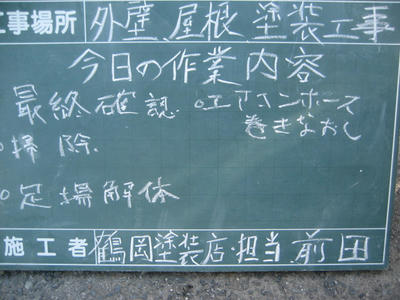 工事場所 外壁.屋根塗装工事
今日の作業内容
最終確認. oエアコンホース
巻きなおし
o掃除.
o足場解体
施工者 鶴岡塗装店・担当 前田